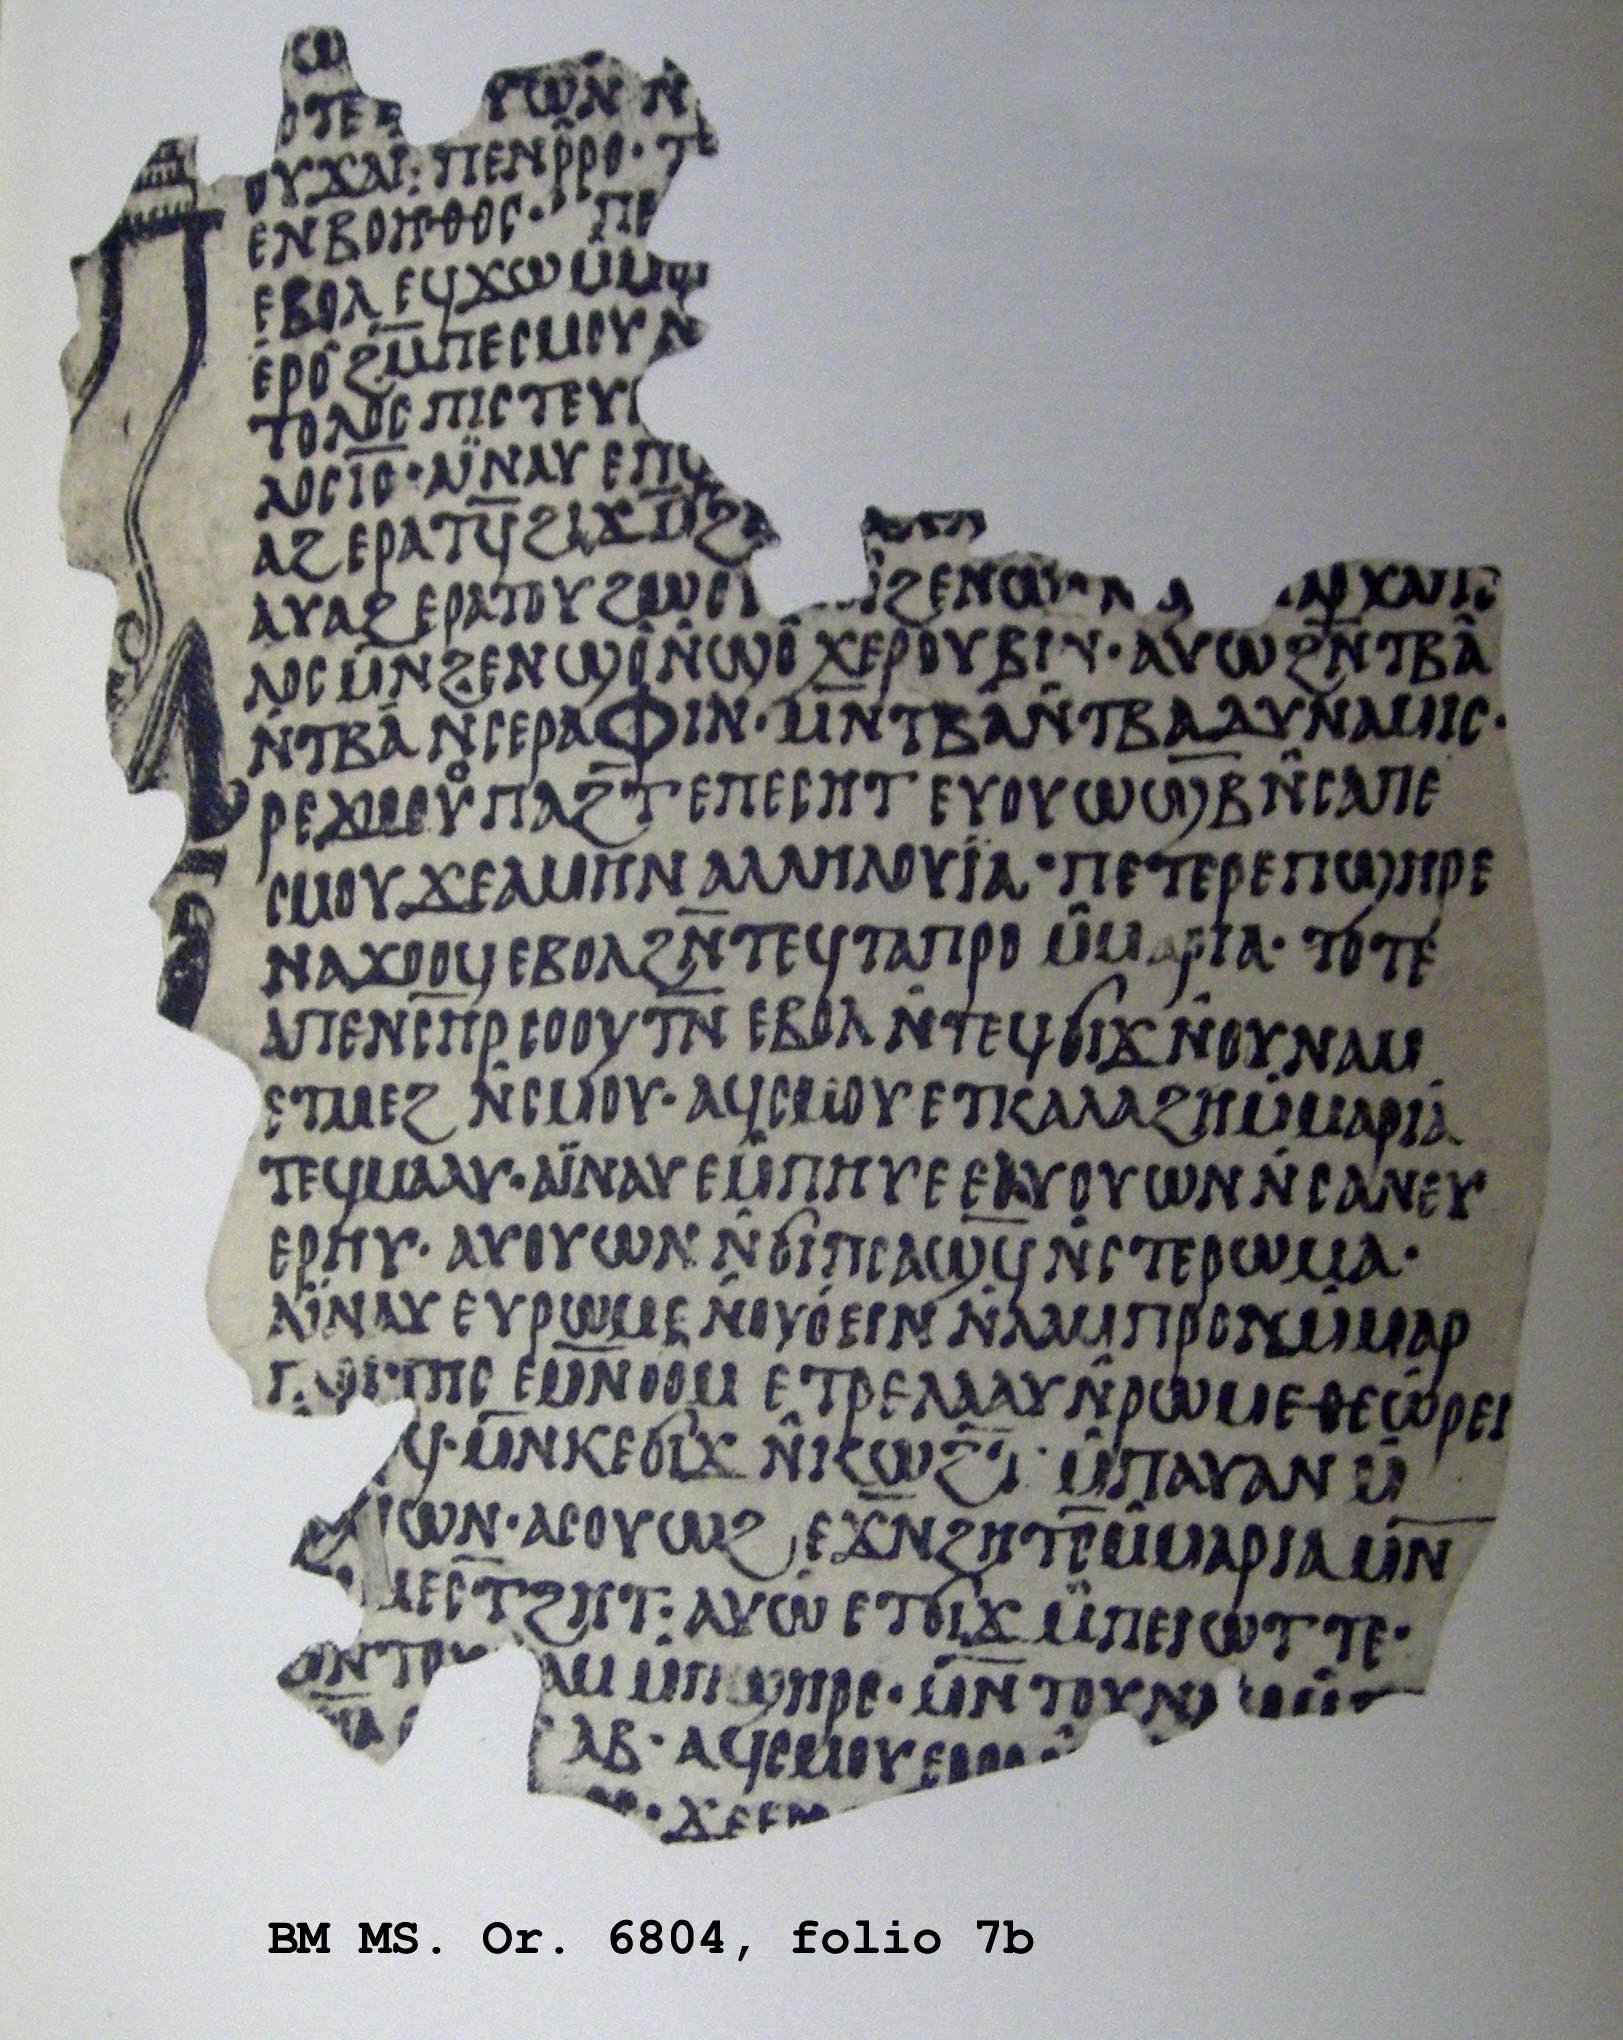 ϣ
ⲟⲧⲉ ⲩⲱⲛ ⲛ̀
ⲟⲩϫⲁⲓ̈: ⲡⲉⲛⲣ̂ⲣⲟ·
ⲉⲛⲃⲟⲏⲑⲟⲥ· ⲡⲉ
ⲉⲃⲟⲗ ⲉϥϫⲱ
ⲉⲣⲟ̂ ϩⲙ̅ⲡⲉⲥⲙⲟⲩ
ⲧⲟⲗⲟⲥ ⲡⲓⲥⲧⲉⲩ
ⲗⲟⲥⲓⲥ· ⲁⲓ̈ⲛⲁⲩ
ⲁϩⲉⲣⲁⲧϥ̅ ϩⲓϫⲛ̅
ⲁⲩⲁϩⲉⲣⲁⲧⲟⲩ ϩⲱⲥ
ⲗⲟⲥ ⲙ̅ⲛϩⲉⲛϣⲟ̂ⲛ̂ϣⲟ̂ ⲭⲉⲣⲟⲩⲃⲓⲛ· ⲁⲩⲱϩⲛ̅ⲧⲃⲁ̂
ⲛ̀ⲧⲃⲁ̂ ⲛ̀ⲥⲉⲣⲁⲫⲓⲛ· ⲙ̅ⲛⲧⲃⲁ̂ⲛ̂ⲧⲃⲁ ⲇⲩⲛⲁⲙⲓⲥ·
ⲣⲉϫⲱⲟⲩ̊ ⲡⲁϩⲧ ⲉⲡⲉⲥⲏⲧ ⲉⲩⲟⲩⲱϣⲃ ⲛ̂ⲥⲁⲡⲉ
ⲥⲙⲟⲩ ϫⲉⲁⲙⲏⲛ ⲁⲗⲗⲏⲗⲟⲩⲓ̈ⲁ· ⲡⲉⲧⲉⲣⲉⲡϣⲏⲣⲉ
ⲛⲁϫⲟⲟϥ ⲉⲃⲟⲗϩⲛ̅ ⲧⲉϥⲧⲁⲡⲣⲟ ⲙ̂ⲙⲁⲣⲓⲁ· ⲧⲟⲧⲉ
ⲁⲡⲉⲛⲥⲏⲣ ⲥⲟⲟⲩⲧⲛ̅ ⲉⲃⲟⲗ ⲛ̀ⲧⲉϥϭⲓϫ ⲛ̂ⲟⲩⲛⲁⲙ
ⲉⲧⲙⲉϩ ⲛ̀ⲥⲙⲟⲩ· ⲁϥⲥⲙⲟⲩ ⲉⲧⲕⲁⲗⲁϩⲏ ⲙ̀ⲙⲁⲣⲓⲁ
ⲧⲉϥⲙⲁⲁⲩ· ⲁⲓ̈ⲛⲁⲩ ⲉⲙ̂ⲡⲏⲩⲉ ⲉⲁⲩⲟⲩⲱⲛ ⲛ̀ⲥⲁⲛⲉⲩ
ⲉⲣⲏⲩ· ⲁⲩⲟⲩⲱⲛ ⲛ̂ϭⲓⲡⲥⲁϣϥ ⲛ̀ⲥⲧⲉⲣⲱⲙⲁ·
ⲁⲓ̈ⲛⲁⲩ ⲉⲩⲣⲱⲙⲉ ⲛ̂ⲟⲩⲟⲉⲓⲛ ⲛ̀ⲗⲁⲙⲡⲣⲟⲛ ⲙ̂ⲙⲁⲣ
ⲅ ⲧⲏⲥ ⲉⲙ̅ⲛϭⲟⲙ ⲉⲧⲣⲉⲗⲁⲁⲩ ⲛ̂ⲣⲱⲙⲉ ⲑⲉⲱⲣⲉⲓ
ϥ· ⲙ̅ⲛⲕⲉϭⲓϫ ⲛ̂ⲕⲱϩⲧ̂ ⲙ̂ⲡⲁⲩⲁⲛ ⲙ̀
ⲱⲛ· ⲁⲥⲟⲩⲱϩ ⲉϫⲛϩⲏⲧⲥ̅ ⲙ̂ⲙⲁⲣⲓⲁ ⲙ̅ⲛ
ⲙⲉⲥⲧϩⲏⲧ: ⲁⲩⲱ ⲉⲧϭⲓϫ ⲙ̈ⲡⲉⲓⲱⲧ ⲧⲉ·
ⲙ̅ⲛⲧⲟⲩ ⲁⲙ ⲙ̀ⲡϣⲏⲣⲉ· ⲙ̅ⲛⲧⲟⲩⲛ
ⲁⲃ· ⲁϥⲥⲙⲟⲩ
ϫⲉ
BM MS. Or. 6804, folio 7b